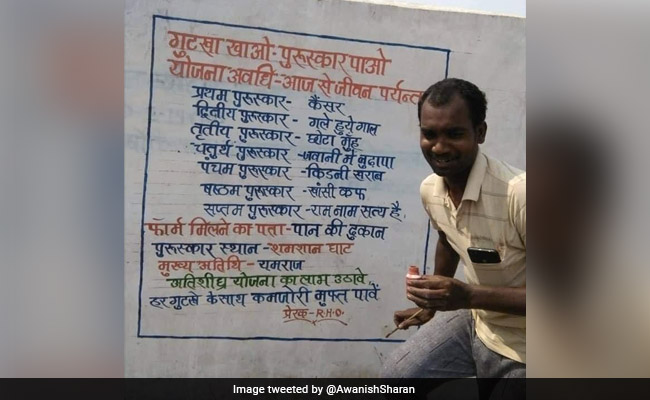 गुटखा खाओ-पुरूस्कार पाओ
योजना अवधि-आज से जीवन पर्यन्त
प्रथम पुरूस्कार- कैंसर
द्वितीय पुरूस्कार- गले हुये गाल
तृतीय पुरूस्कार- छोटा मुँह
चतुर्थ पुरूस्कार-जवानी में बुढापा
पंचम पुरूस्कार -किडनी खराब
षष्ठम पुरूस्कार -खांसी कफ
सप्तम पुरूस्कार-राम नाम सत्य है
फॉर्म मिलने का पता-पान की दुकान
पुरूस्कार स्थान-शमशान घाट
मुख्य अतिथि- यमराज
अतिशीघ्र योजना का लाभ उठावे
हर गुटखे के साथ कमजोरी मुफ्त पावें
प्रेरक-R.H.O.
Image tweeted by @AwanishSharan